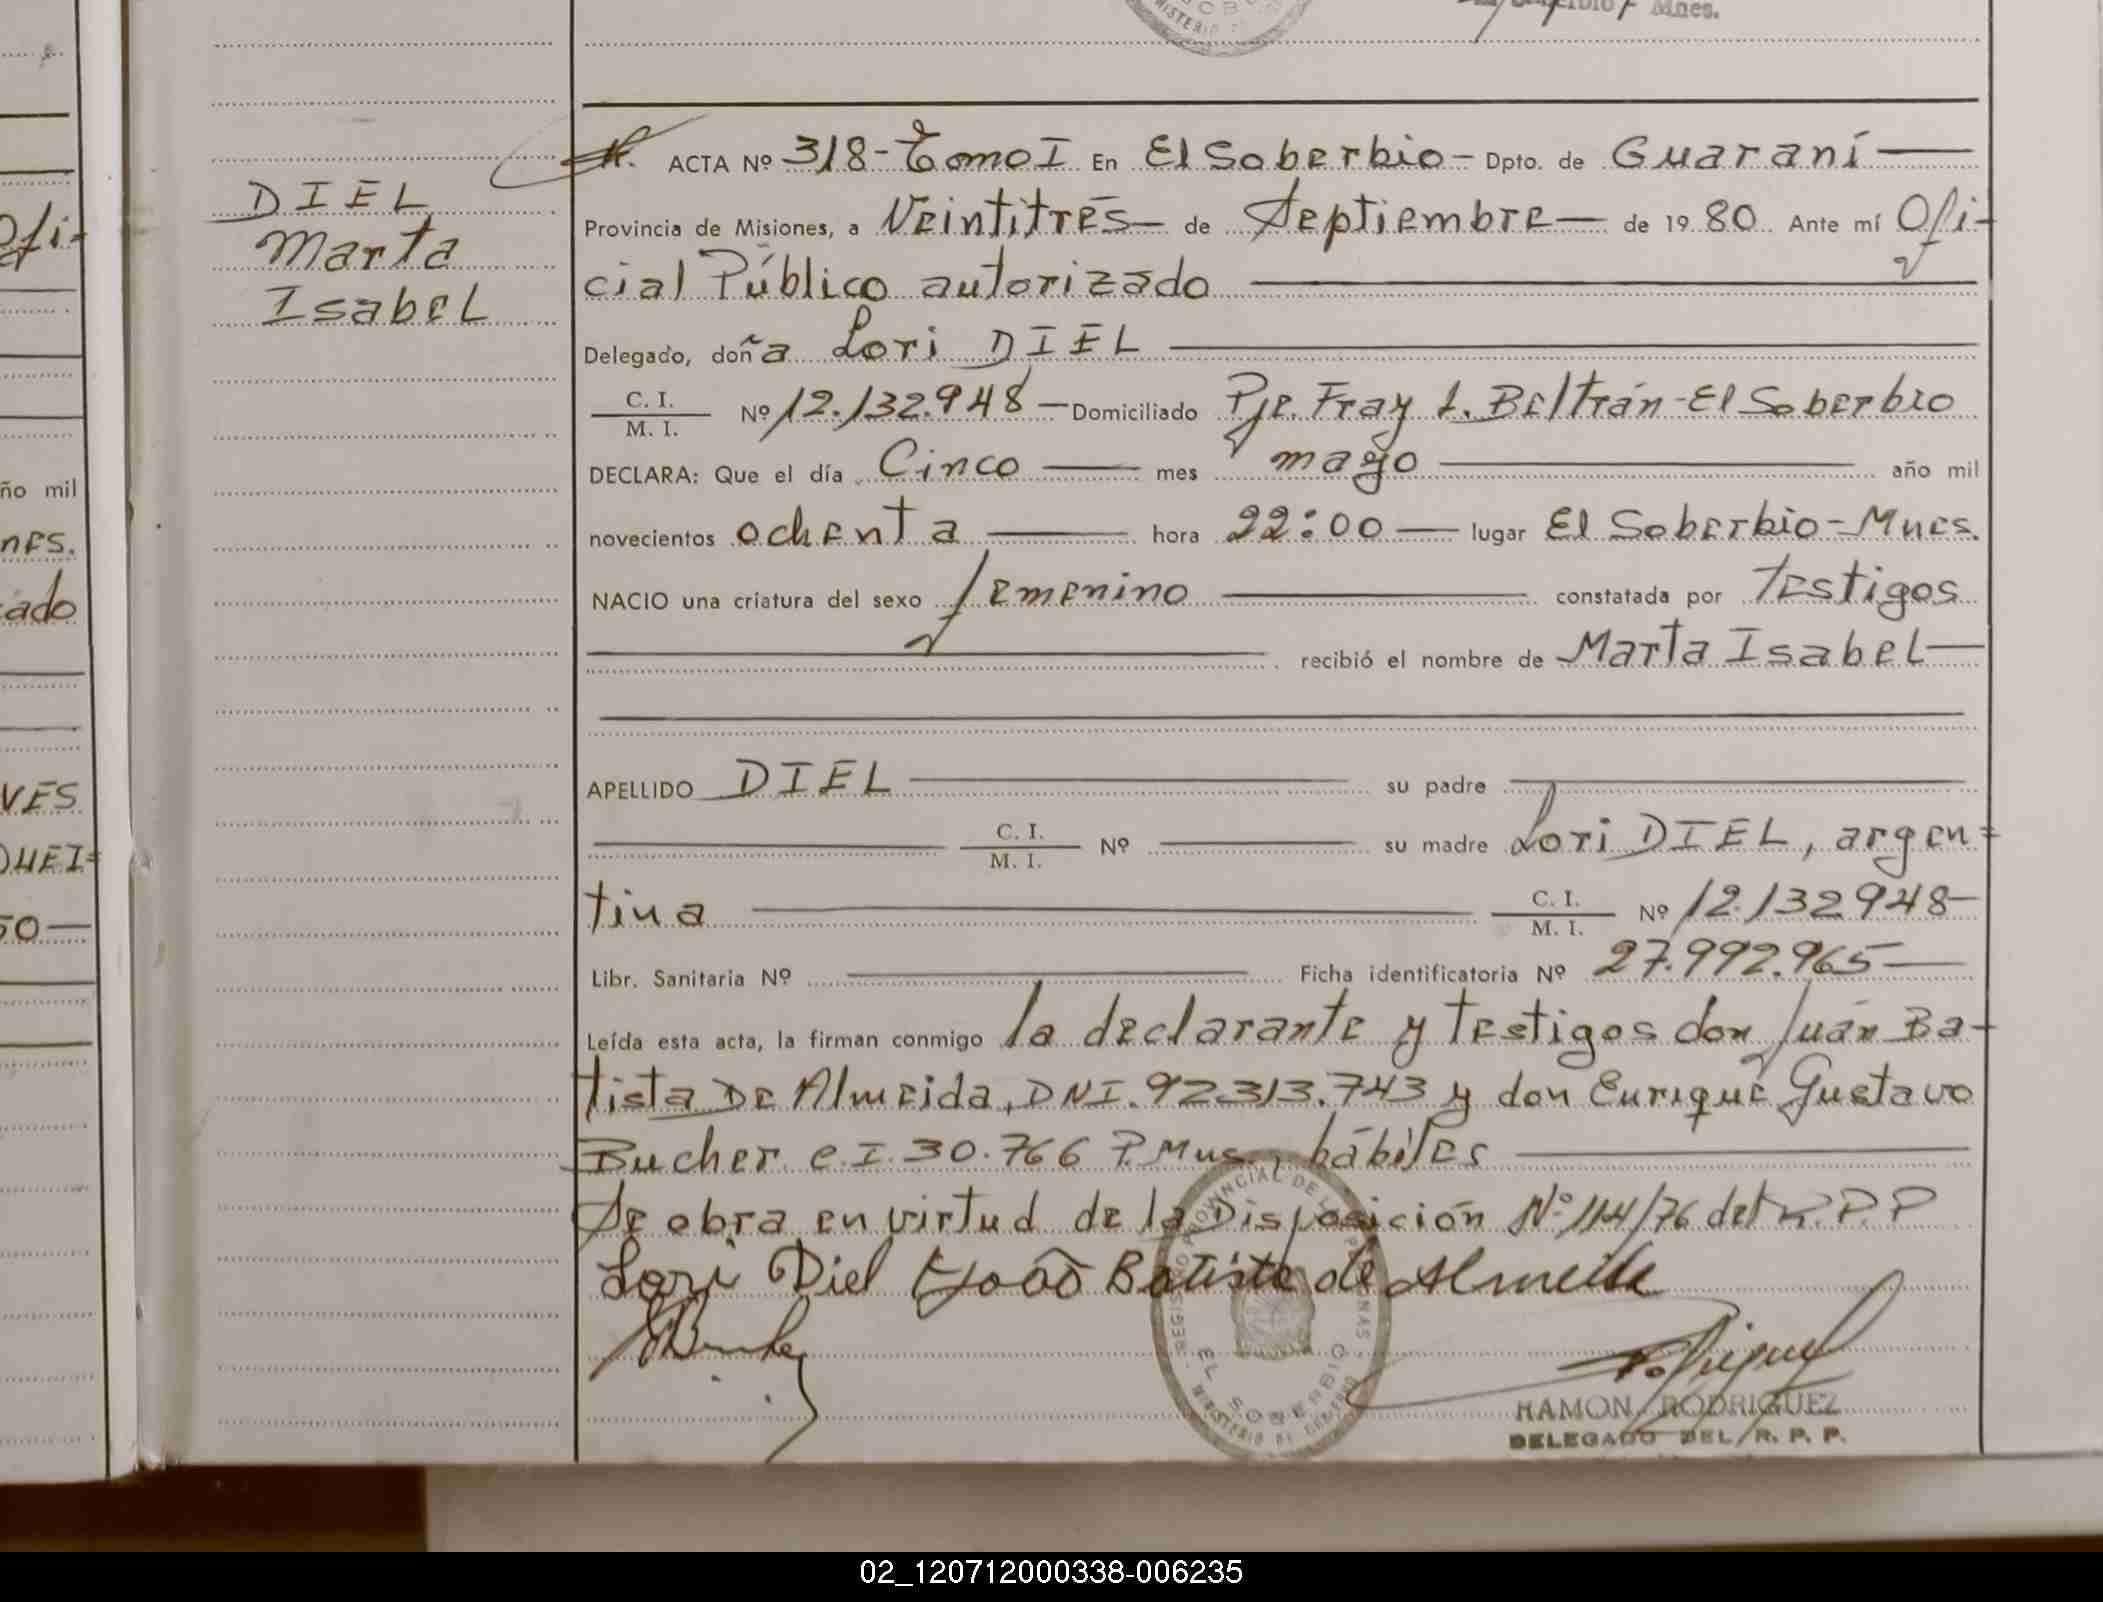 Mnes.
DIEL
Marta
Isabel
ACTA Nº 318-Tomo I En El Soberbio- Dpto. de Guaraní
Provincia de Misiones, a Veintitrés de Septiembre de 1980 Ante mí Ofi-
cial Público autorizado
Delegado, doña Lori DIEL
C. I.
M. I. Nº 12.132.948 Domiciliado Pje. Fray L. Beltrán-El Soberbio
DECLARA: Que el día Cinco mes mayo año mil
novecientos ochenta hora 22:00 lugar El Soberbio-Mnes.
NACIO una criatura del sexo femenino constatada por testigos
recibió el nombre de Marta Isabel
APELLIDO DIEL su padre
C. I.
M. I. Nº su madre Lori DIEL, argen-
tina C. I.
M. I. Nº 12.132948
Libr. Sanitaria Nº Ficha identificatoria Nº 27.992.965
Leída esta acta, la firman conmigo la declarante y testigos don Juán Ba-
tista De Almeida, DNI.92313.743 y don Enrique Gustavo
Bucher C.I. 30.766 P.Mns., hábiles
Se obra en virtud de la Disposición Nº 114/76 del R.P.P
Lori Diel João Batista de Almeida
REGISTRO PROVINCIAL DE LAS PERSONAS
EL SOBERBIO
MINISTERIO DE GOBIERNO
RAMON RODRIGUEZ
DELEGADO DEL R. P. P.
Ofi-
ño mil
nes.
ado
VES
QUEI-
50
02_120712000338-006235